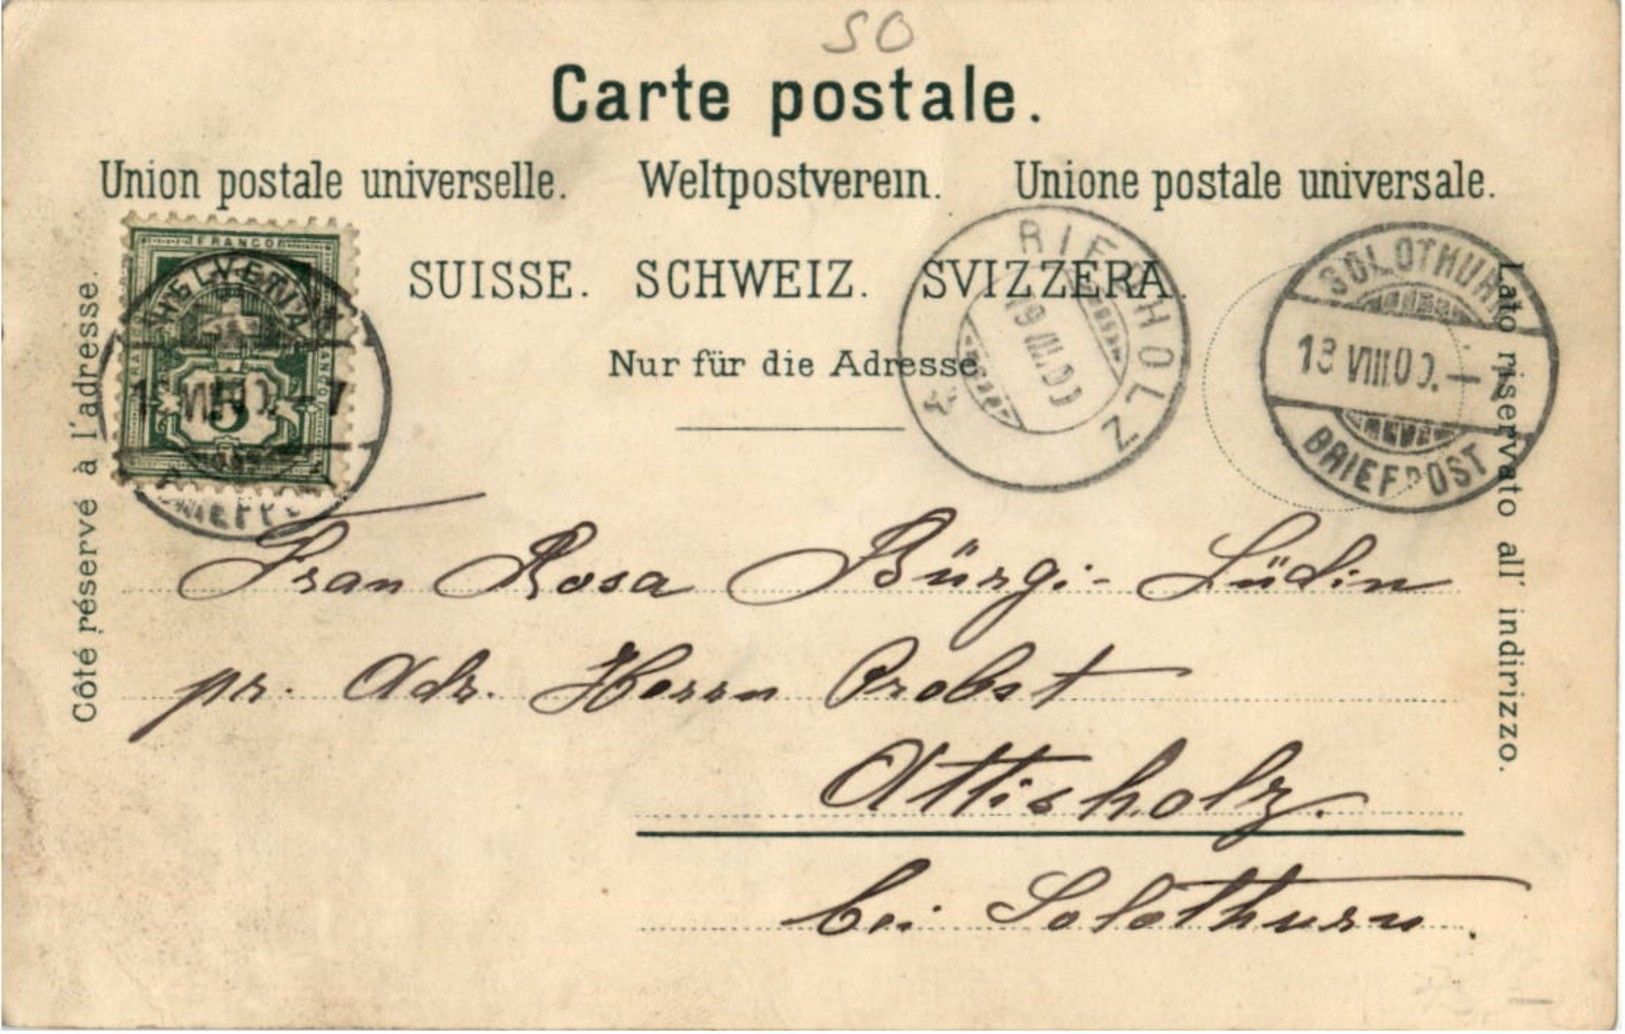 SO
Carte postale.
Union postale universelle. Weltpostverein. Unione postale universale.
SUISSE. SCHWEIZ. SVIZZERA.
Nur für die Adresse
Côté réservé à l'adresse.
Lato riservato all' indirizzo.
FRANCO
HELVETIA
5
RIEDHOLZ
19 VIII.00
SOLOTHURN
18 VIII 00.–7
BRIEFPOST
Frau Rosa Bürgi-Lüdin
pr. Adr. Herrn Probst
Attisholz.
bei Solothurn.